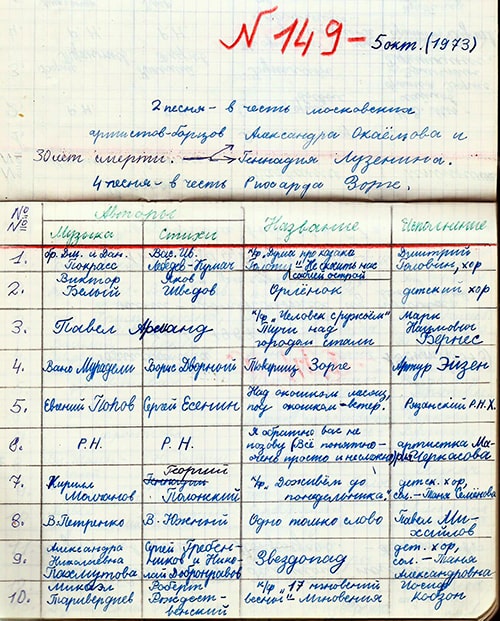 № 149 - 5 окт. (1973)
2 песня - в честь московских
артистов-борцов Александра Окаёмова и
30 лет смерти. Геннадия Лузенина.
4 песня - в честь Рихарда Зорге.
№№ Авторы Название Исполнение
Музыка Стихи
1. бр. Дм. и Дан. Покрасс Вас. Ив. Лебедев-Кумач "Не скосить нас саблей острой" Дмитрий Головин, хор
2. Виктор Белый Яков Шведов Орлёнок детский хор
3. Павел Арманд к/ф "Человек с ружьём" Тучи над городом стали Марк Наумович Бернес
4. Вано Мурадели Борис Дворный Товарищ Зорге Артур Эйзен
5. Евгений Попов Сергей Есенин Над окошком месяц, под окошком - ветер. Рязанский Р.Н.Х.
6. Р.Н. Р.Н. Я обратно вас не позову (Всё понятно - очень просто и несложно) артистка Мария Черкасова
7. Кирилл Молчанов Георгий Полонский "Доживём до понедельника" детск. хор, сол. - Таня Семёнова
8. В. Петренко В. Южный Одно только слово Павел Михайлов
9. Александра Николаевна Пахмутова Сергей Гребенников и Николай Добронравов Звездопад дет. хор, сол. - Таня Александровна
10. Микаэл Таривердиев Роберт Рождественский к/ф "17 мгновений весны" Мгновения Иосиф Кобзон